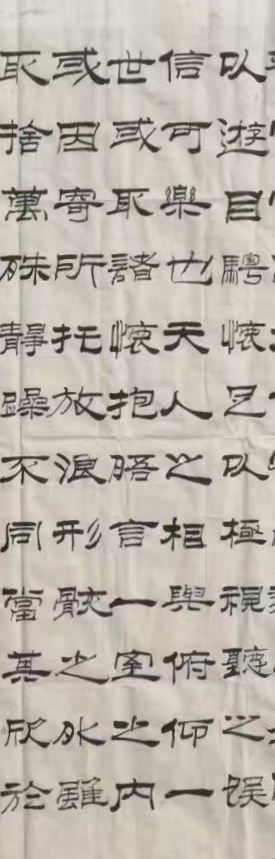 以遊目騁懷足以極視聽之娱
信可樂也夫人之相與俯仰一
世或取諸懷抱晤言一室之内
或因寄所托放浪形骸之外雖
取捨萬殊靜躁不同當其欣於